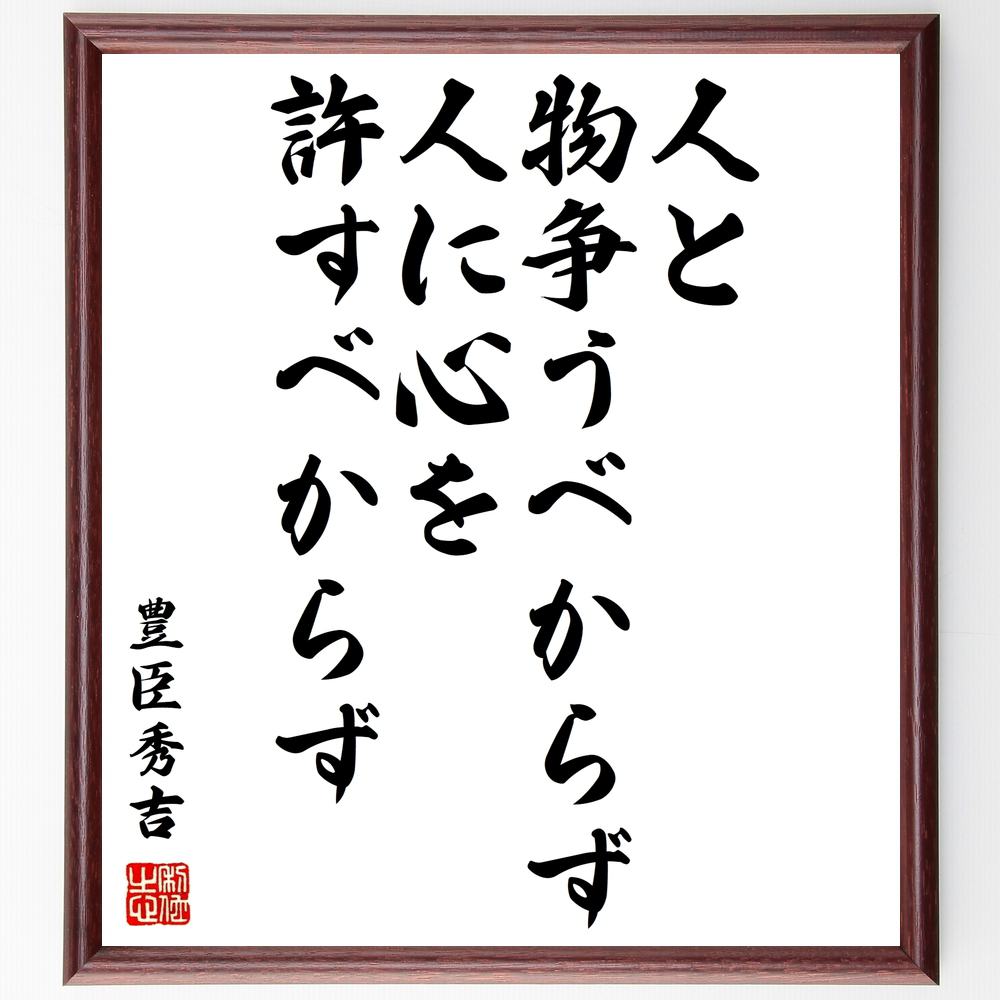 人と
物争うべからず
人に心を
許すべからず
豊臣秀吉